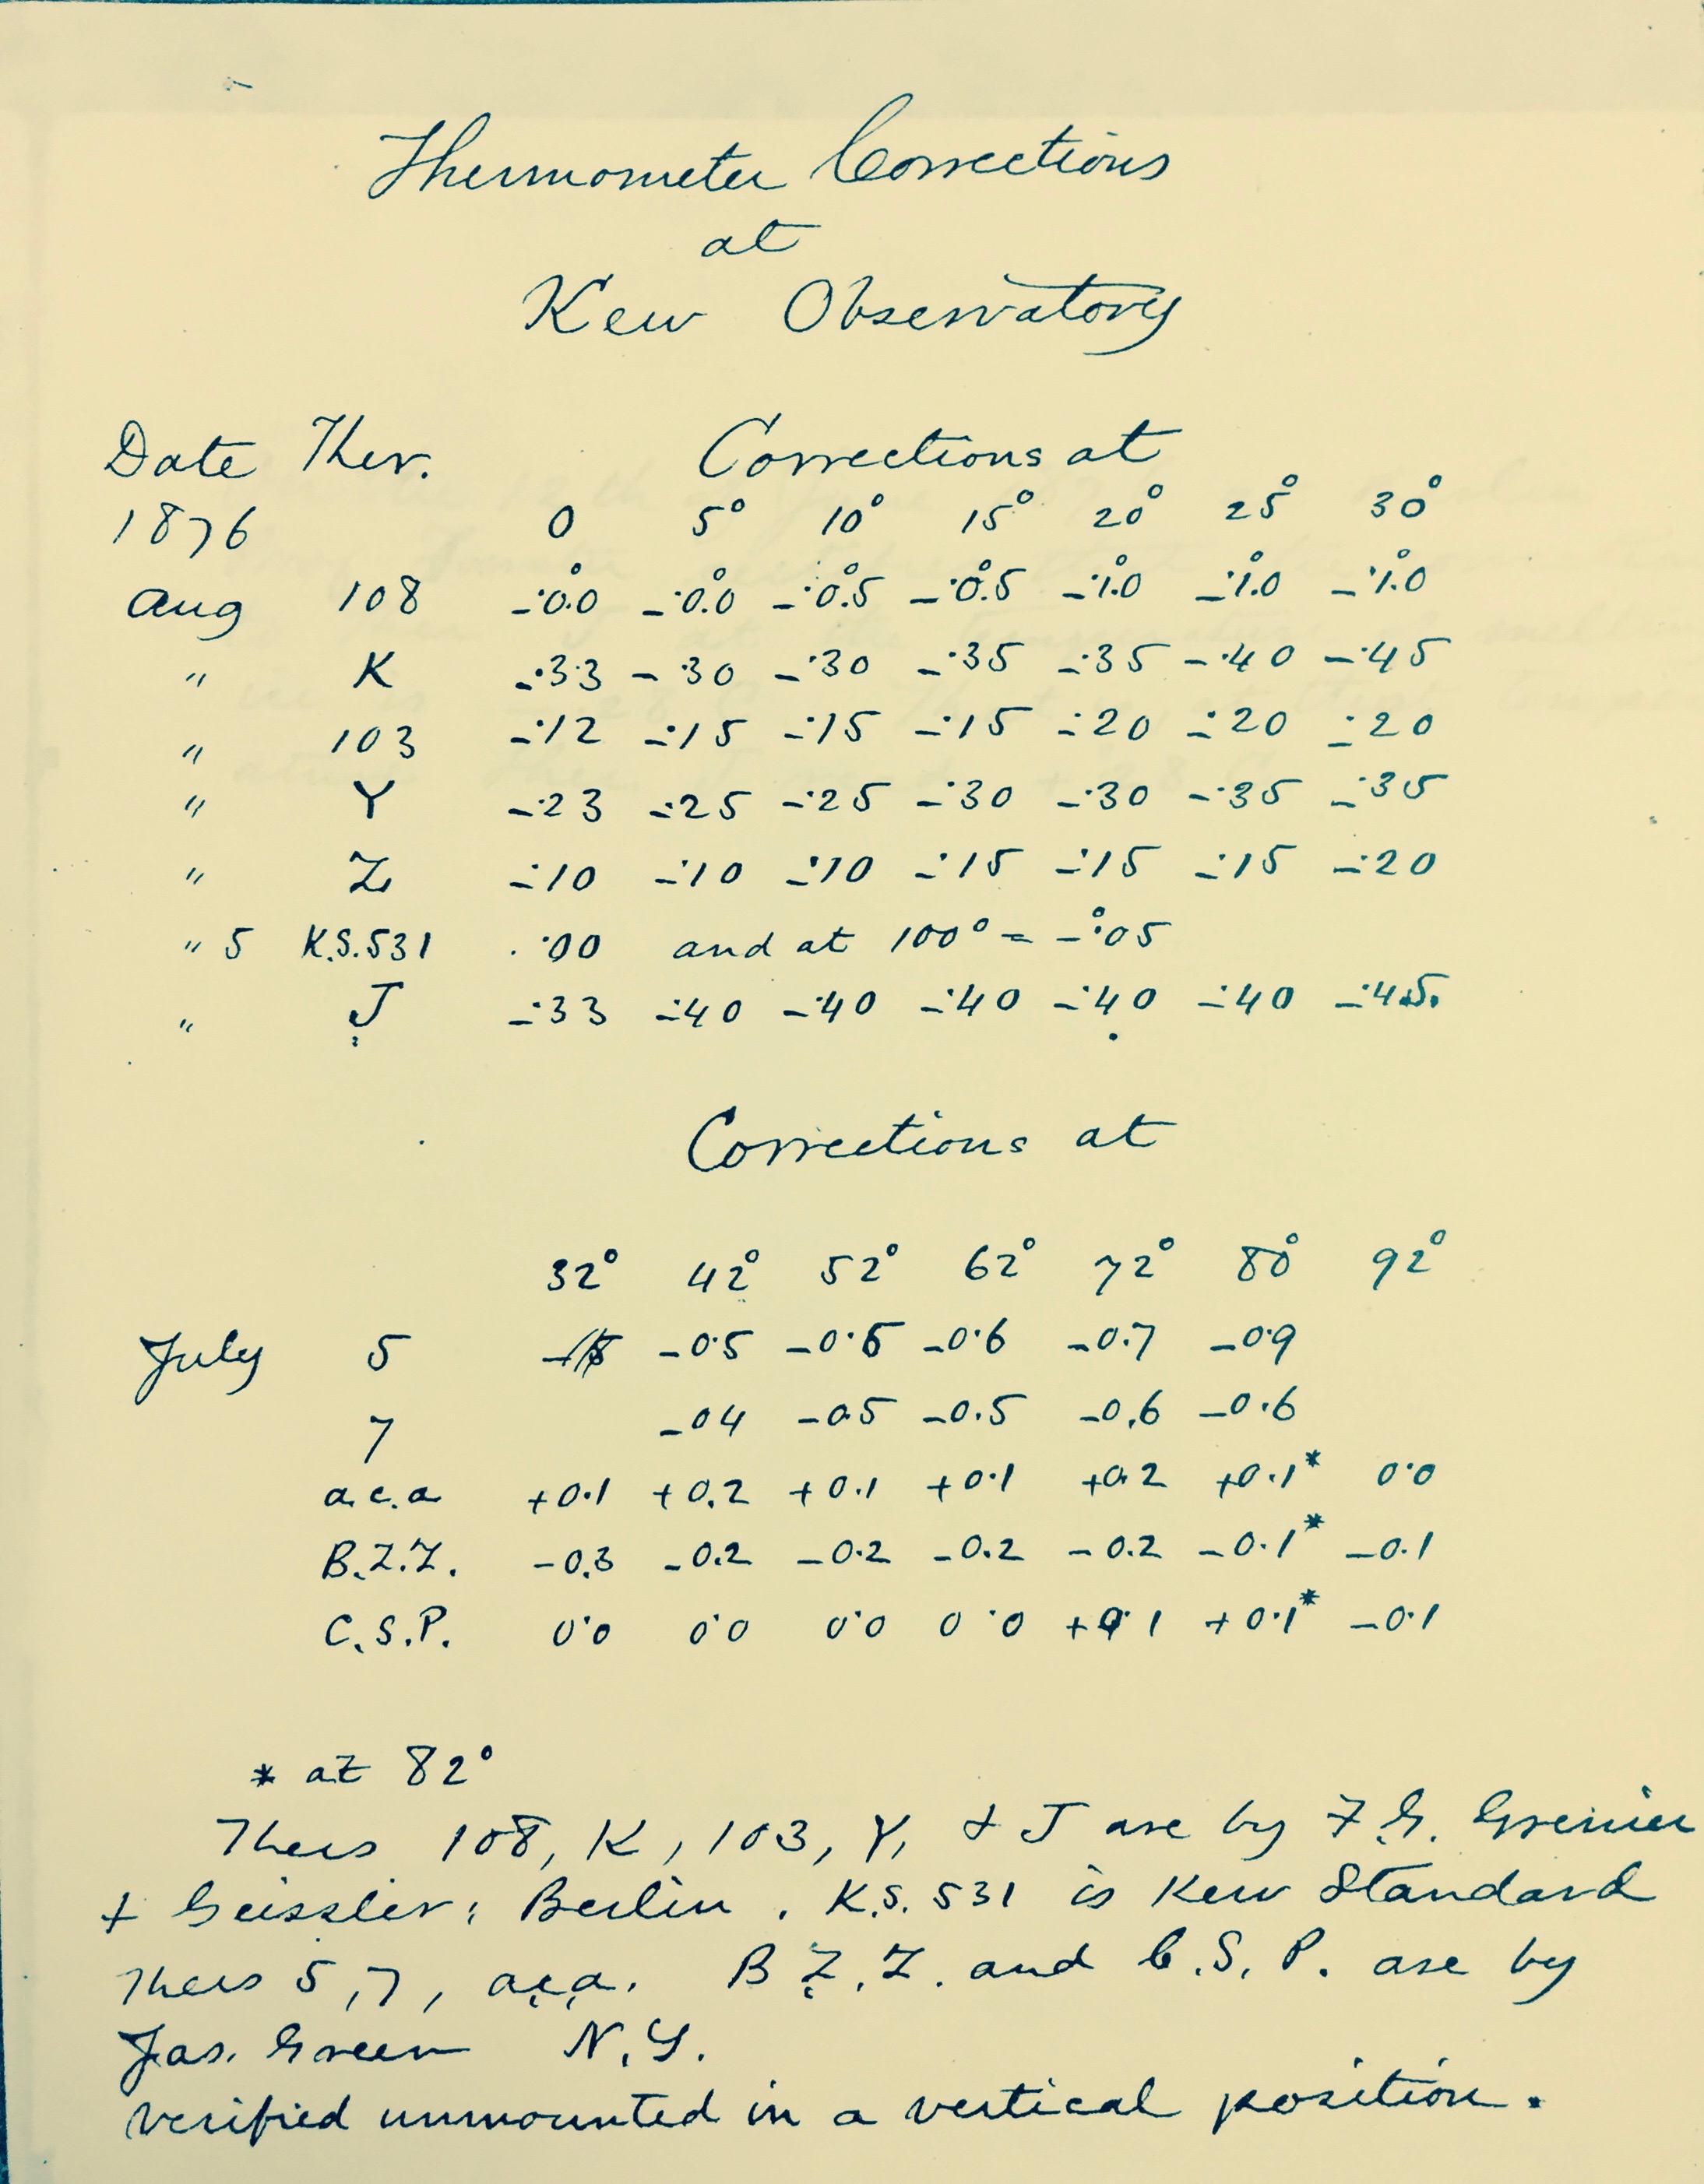 Thermometer Corrections
at
Kew Observatory
Date Ther. Corrections at
1876 0 5° 10° 15° 20° 25° 30°
Aug 108 -·0°.0 -·0°.0 -·0°.5 -·0°.5 -·1°.0 -·1°.0 -·1°.0
" K -·33 -·30 -·30 -·35 -·35 -·40 -·45
" 103 -·12 -·15 -·15 -·15 -·20 -·20 -·20
" Y -·23 -·25 -·25 -·30 -·30 -·35 -·35
" Z -·10 -·10 -·10 -·15 -·15 -·15 -·20
" 5 K.S.531 ·00 and at 100° = -°·05
" J -·33 -·40 -·40 -·40 -·40 -·40 -·45
Corrections at
32° 42° 52° 62° 72° 80° 92°
July 5 -0·5 -0·5 -0·6 -0·7 -0·9
7 -04 -0.5 -0.5 -0.6 -0.6
a.c.a +0.1 +0.2 +0.1 +0.1 +0.2 +0.1* 0.0
B.Z.Z. -0.3 -0.2 -0.2 -0.2 -0.2 -0.1* -0.1
C.S.P. 0·0 0·0 0·0 0·0 +0·1 +0·1* -0·1
* at 82°
Thers 108, K, 103, Y, & J are by F.G. Greiner
& Geissler; Berlin. K.S. 531 is Kew Standard
Thers 5, 7, a.c.a. B Z.Z. and C.S.P. are by
Jas. Green N.Y.
verified unmounted in a vertical position.